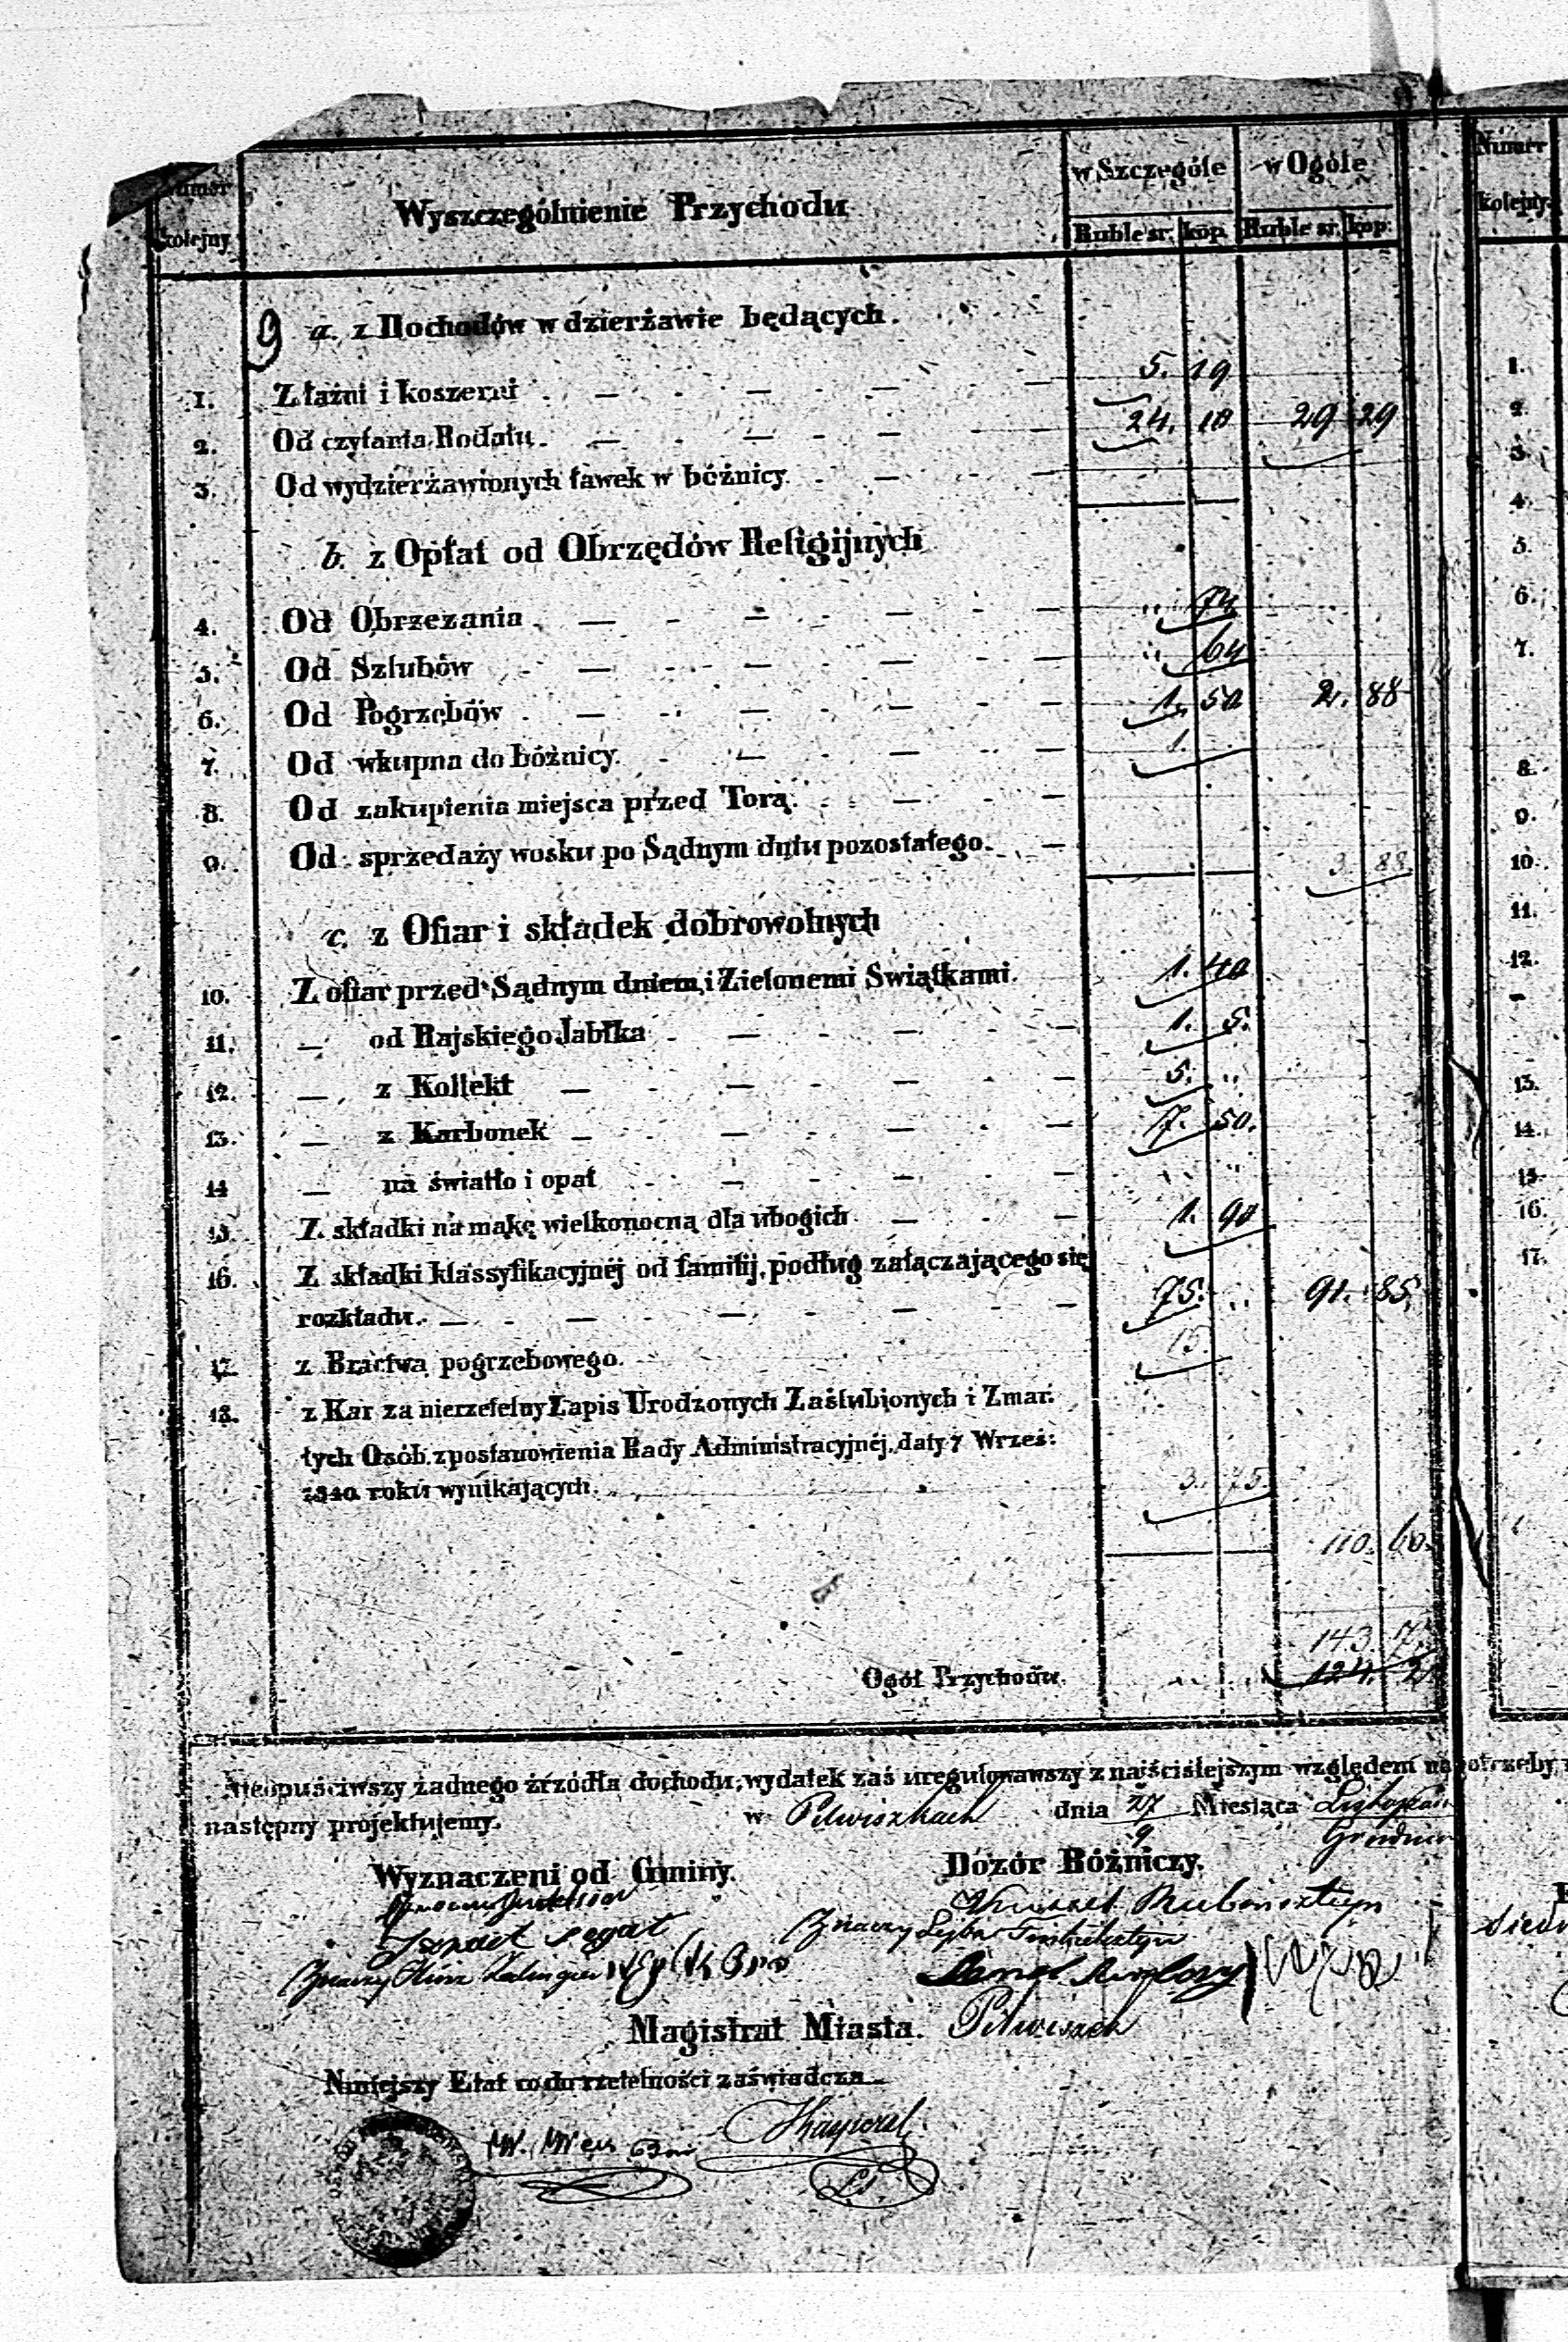 Numer kolejny
Wyszczególnienie Przychodu
w Szczególe
w Ogóle
Ruble sr. kop. Ruble sr. kop.
9 a. z Dochodów w dzierżawie będących.
1. Z łaźni i koszerni 5. 19
2. Od czytania Rodału. 24. 10 29 29
3. Od wydzierżawionych ławek w bóżnicy.
b. z Opłat od Obrzędów Religijnych
4. Od Obrzezania „ 74
5. Od Szlubów „ 64
6. Od Pogrzebów 1. 50 2. 88
7. Od wkupna do bóżnicy. 1.
8. Od zakupienia miejsca przed Torą.
9. Od sprzedaży wosku po Sądnym dniu pozostałego.
3. 88
c. z Ofiar i składek dobrowolnych
10. Z ofiar przed Sądnym dniem i Zielonemi Swiątkami. 1. 40
11. — od Rajskiego Jabłka 1. 5.
12. — z Kollekt 5. „
13. — z Karbonek 7. 50.
14 — na światło i opał „ „
15. Z składki na mąkę wielkonocną dla ubogich 1. 90
16. Z składki klassyfikacyjnéj od familij, podług załączającego się
rozkładu. 75. „ 91. 85.
17. z Bractwa pogrzebowego. 15.
18. z Kar za nierzetelny Zapis Urodzonych Zaślubionych i Zmar.
łych Osób, z postanowienia Rady Administracyjnéj, daty 7 Wrześ:
1840 roku wynikających. 3. 75.
110. 60.
143. 7
Ogół Przychodu. „ „ 124. 2
Nieopuściwszy żadnego żrzódła dochodu, wydatek zaś uregulowawszy z najściślejszym względem na potrzeby
następny projektujemy. w Pilwiszkach dnia 27/9 Miesiąca Listopada
Grudnia
Wyznaczeni od Gminy. Dozór Bóżniczy.
Rubinsztejn
Segal
Znaczy Lejba
Znaczy
Magistrat Miasta. Pilwiszek
Niniejszy Etat co do rzetelności zaświadcza